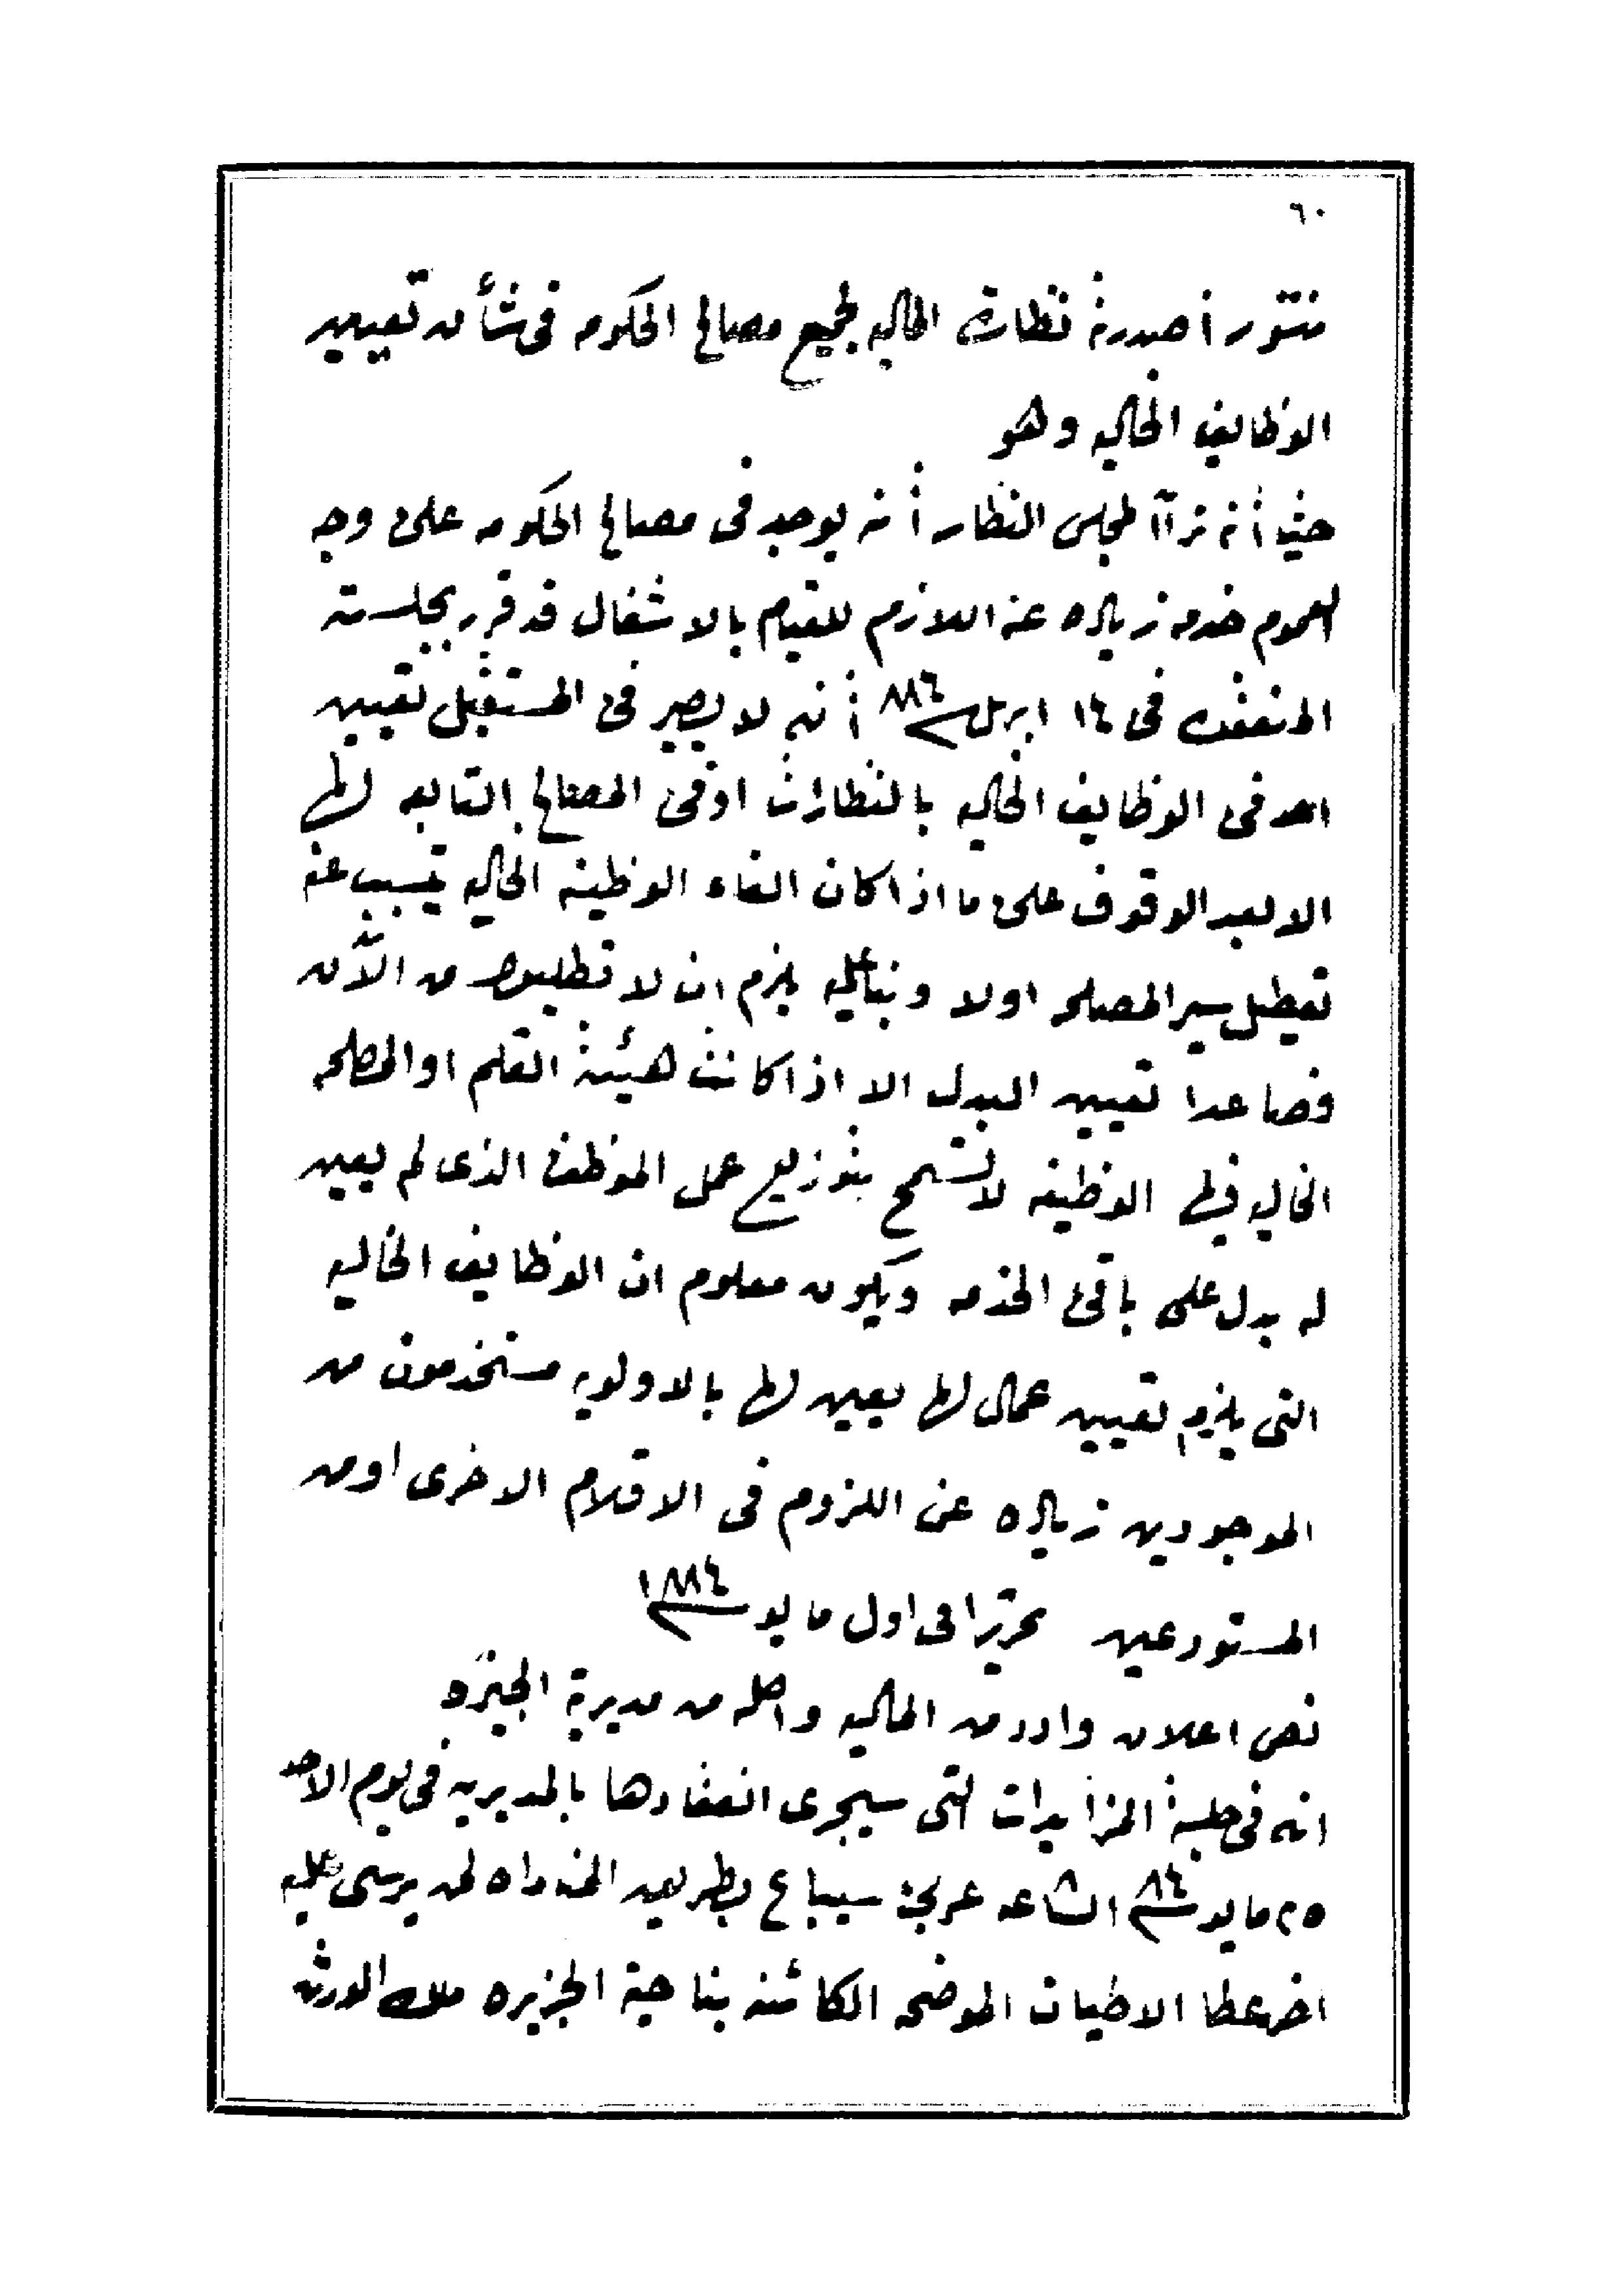 ٦٠
منشور أصدرته نظارة الماليه لجميع مصالح الحكومه فى شأن تعيين
الوظايف الخاليه وهو
حيث أنه ترآآ لمجلس النظار أنه يوجد فى مصالح الحكومه على وجه
العموم خدمه زياده عن اللازم للقيام بالاشغال قد قرر بجلسته
المنعقده فى ١٤ ابريل سنة ٨٨٤ أنه لا يصير فى المستقبل تعيين
احد فى الوظايف الخاليه بالنظارات او فى المصالح التابعه لها
الا بعد الوقوف على ما اذا كان الغاء الوظيفه الخاليه يتسبب عنه
تعطيل سير المصلحه اولا وبناء عليه يلزم ان لا تطلبوا من الآن
فصاعدا تعيين البدل الا اذا كانت هيئة القلم او المصلحه
الخاليه فيها الوظيفه لا تسمح بتوزيع عمل الموظف الذى لم يعين
له بدل على باقى الخدمه ويكون معلوم ان الوظايف الخاليه
التى يلزم تعيين عمال لها يعين لها بالاولويه مستخدمون من
الموجودين زياده عن اللزوم فى الاقلام الاخرى او من
المستودعين تحريرا فى اول مايو سنة ١٨٨٤
نص اعلان وارد من الماليه واصله من مديرية الجيزه
انه فى جلسة المزايدات التى سيجرى انعقادها بالمديريه فى يوم الاحد
٢٥ مايو سنة ٨٤ الساعه ٨ عربى سيباع بطريق المناداه لمن يرسى عليه
اخر عطا الاطيان الموضحه الكائنه بناحية الجزيره ملك الورثه